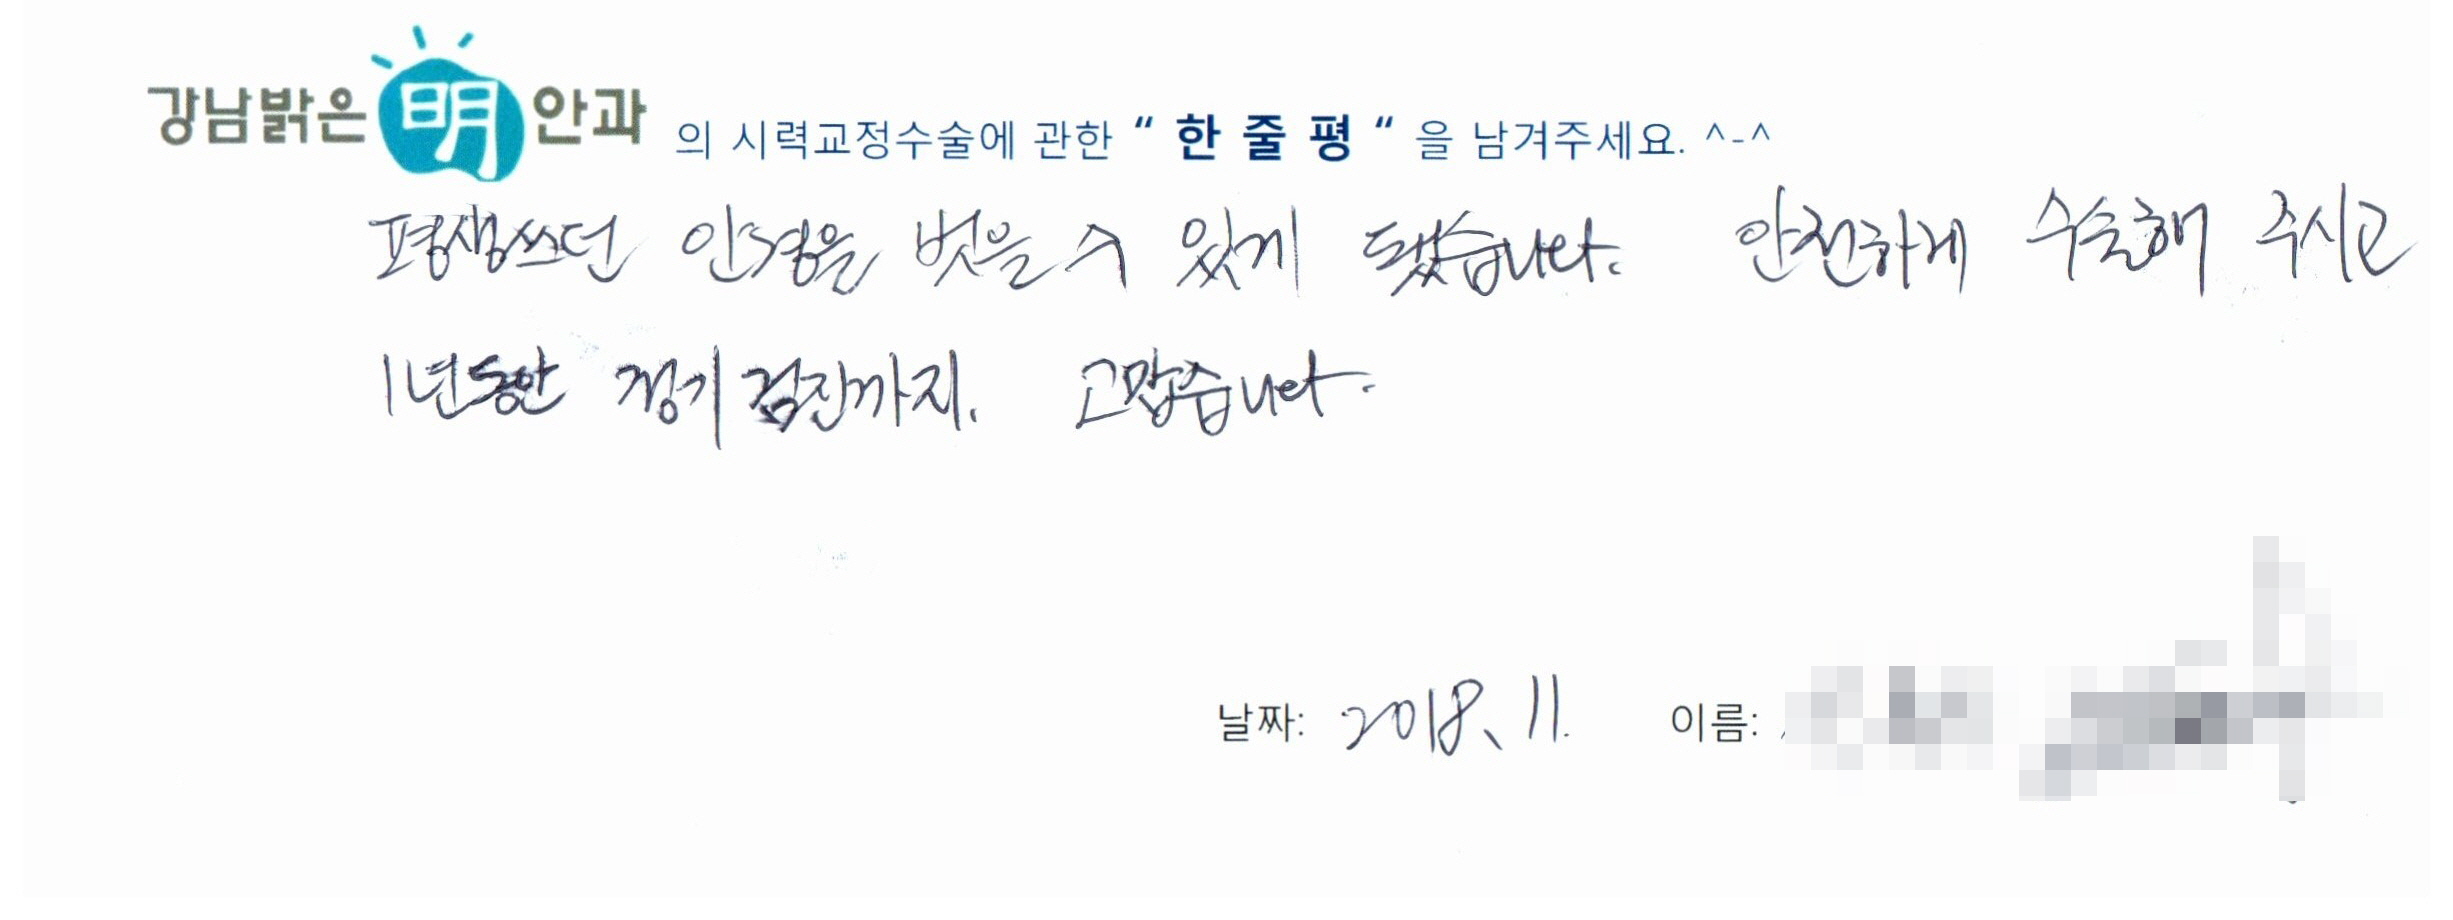 강남밝은明안과 의 시력교정수술에 관한 “ 한 줄 평 “ 을 남겨주세요. ^-^
평생쓰던 안경을 벗을 수 있게 됐습니다. 안전하게 수술해 주시고
1년동안 정기검진까지. 고맙습니다.
날짜: 2018. 11. 이름: